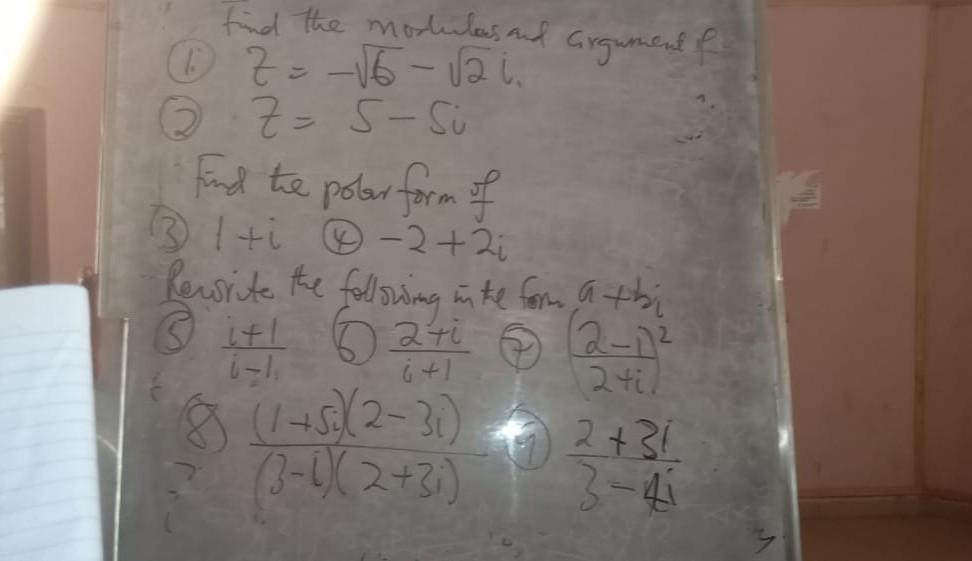 Find the modulus and argument of
① Z = -√6 - √2 i.
② Z = 5 - 5i
Find the polar form of
③ 1 + i ④ -2 + 2i
Rewrite the following in the form a + bi
⑤ (i+1)/(i-1) ⑥ (2+i)/(i+1) ⑦ ((2-i)/(2+i))²
⑧ ((1+5i)(2-3i))/((3-i)(2+3i)) ⑨ (2+3i)/(3-4i)